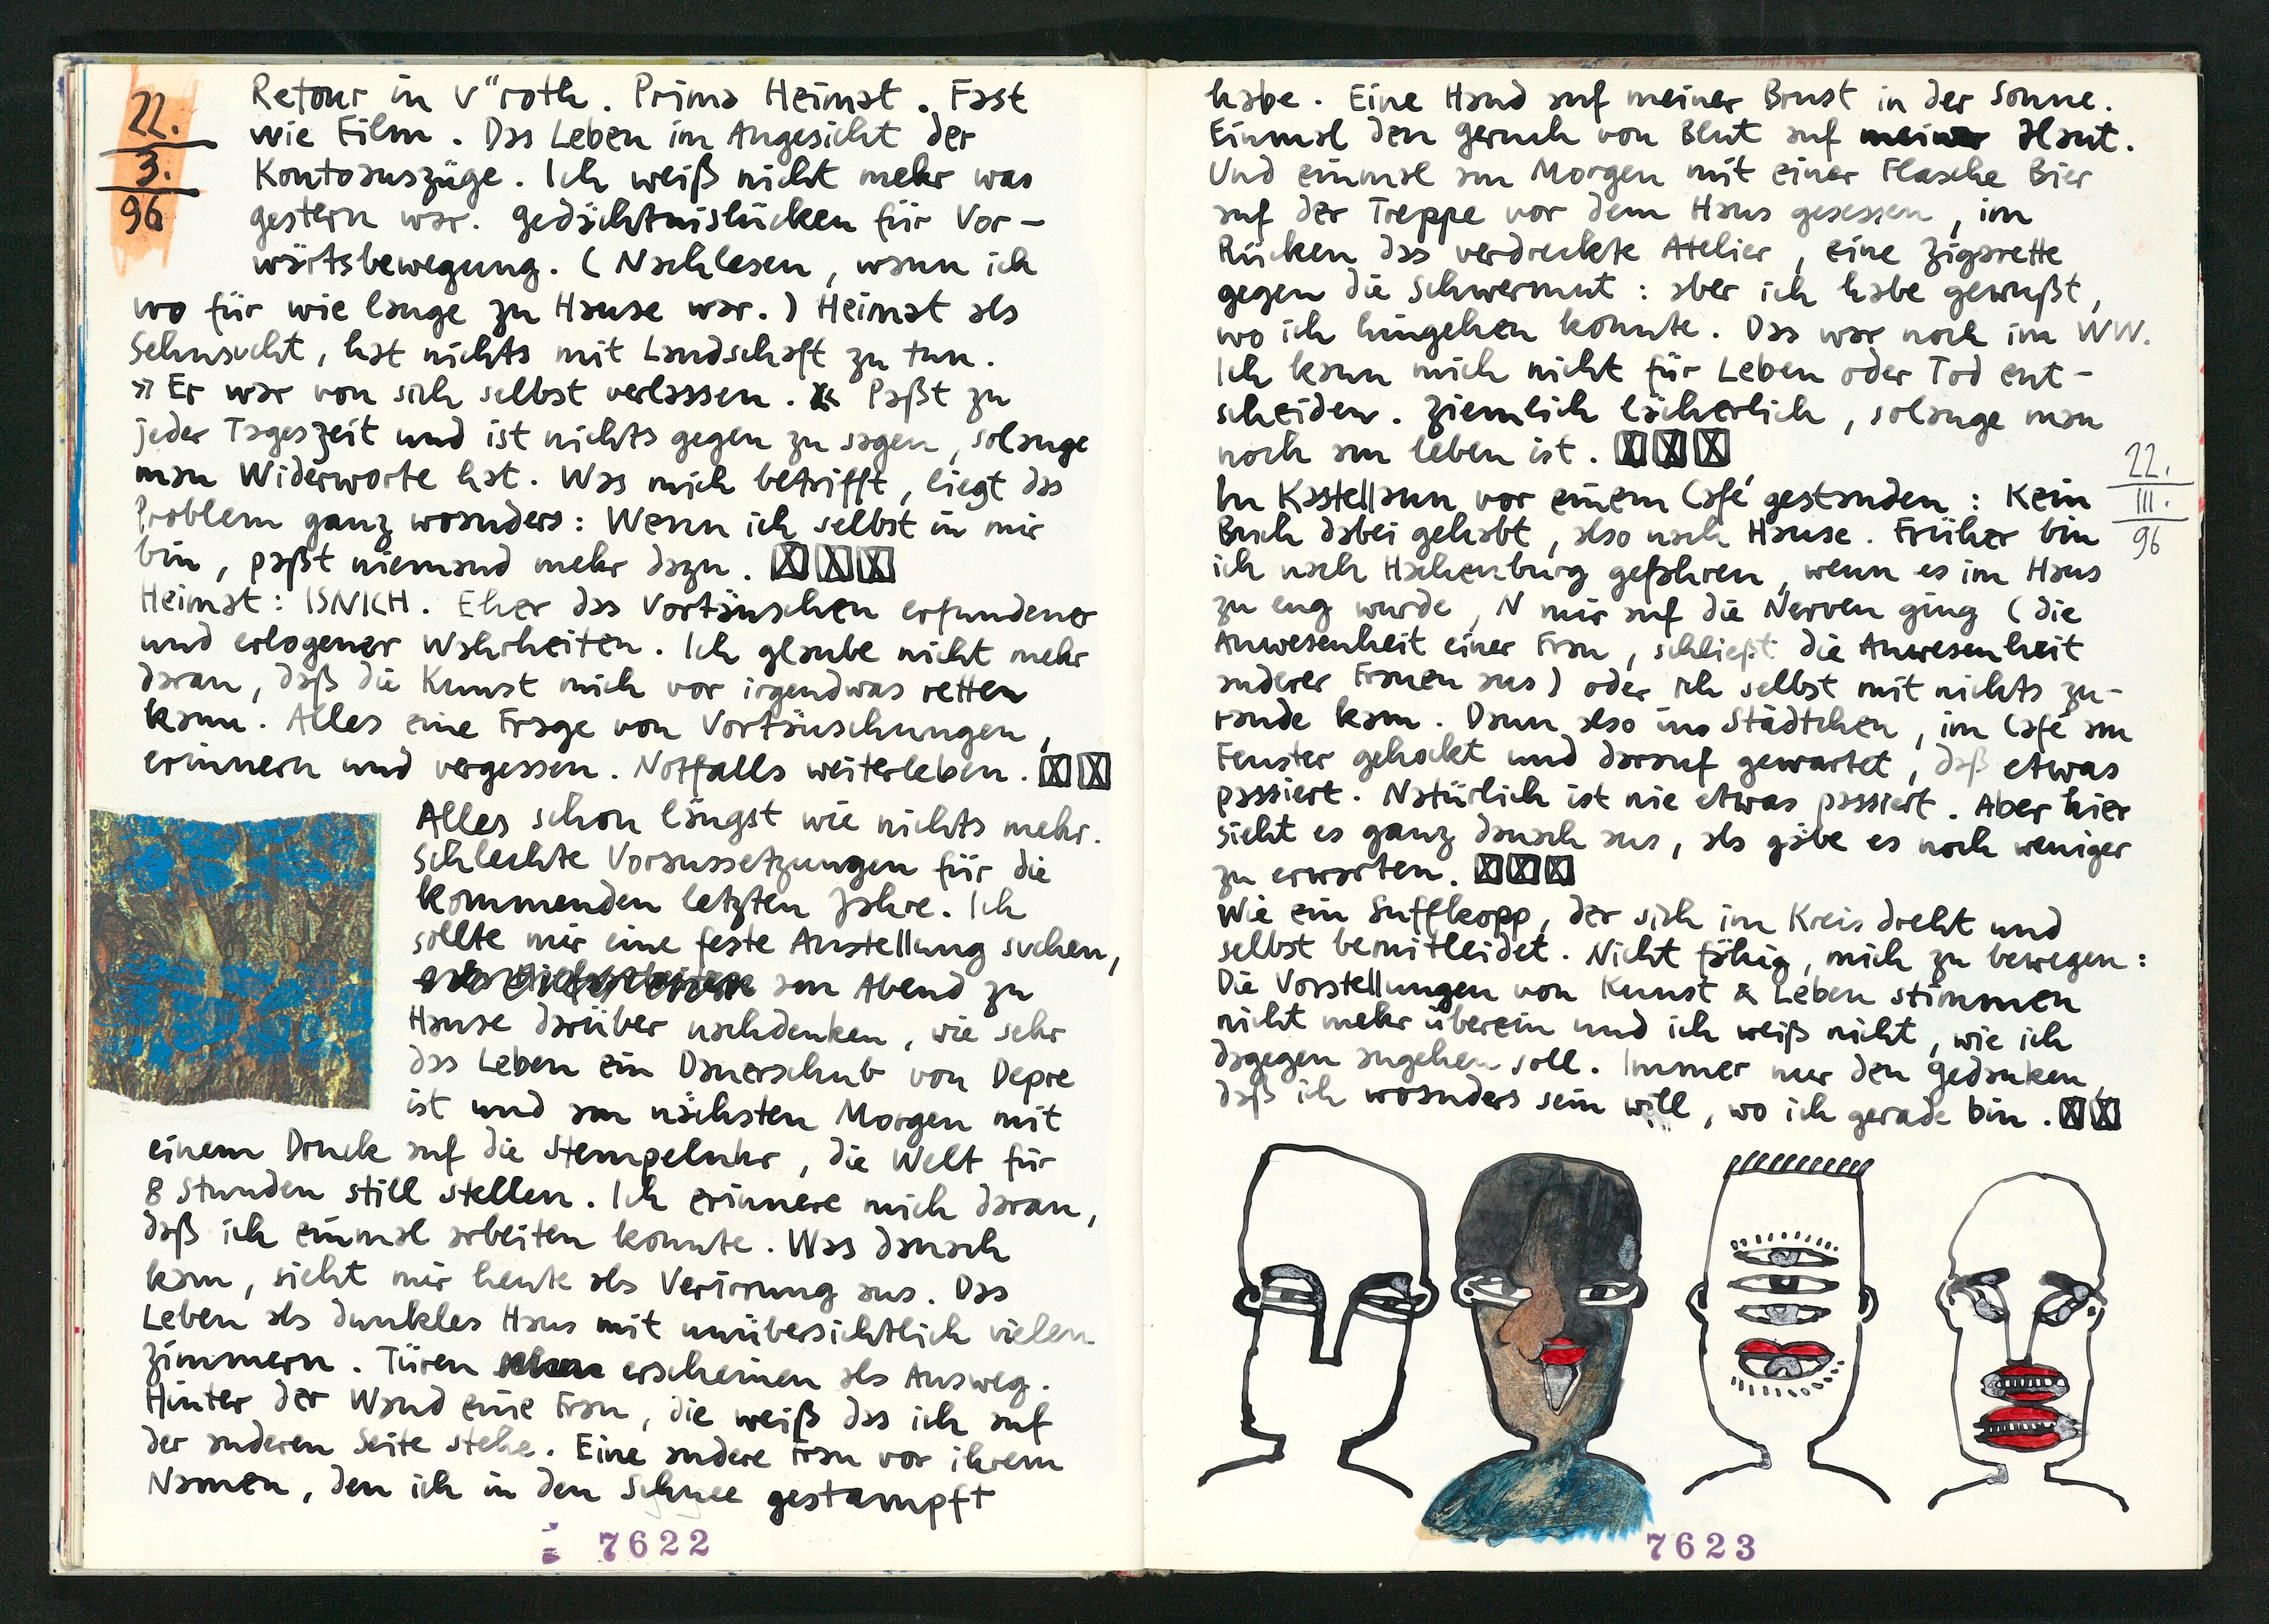 22.
3.
96
Retour in V"roth. Prima Heimat. Fast
wie Film. Das Leben im Angesicht der
Kontoauszüge. Ich weiß nicht mehr was
gestern war. Gedächtnislücken für Vor-
wärtsbewegung. (Nachlesen, wann ich
wo für wie lange zu Hause war.) Heimat als
Sehnsucht, hat nichts mit Landschaft zu tun.
»Er war von sich selbst verlassen.« Paßt zu
jeder Tageszeit und ist nichts gegen zu sagen, solange
man Widerworte hat. Was mich betrifft, liegt das
Problem ganz woanders: Wenn ich selbst in mir
bin, paßt niemand mehr dazu.
Heimat: ISNICH. Eher das Vortäuschen erfundener
und erlogener Wahrheiten. Ich glaube nicht mehr
daran, daß die Kunst mich vor irgendwas retten
kann. Alles eine Frage von Vortäuschungen,
erinnern und vergessen. Notfalls weiterleben.
Alles schon längst wie nichts mehr.
Schlechte Voraussetzungen für die
kommenden letzten Jahre. Ich
sollte mir eine feste Anstellung suchen,
am Abend zu
Hause darüber nachdenken, wie sehr
das Leben ein Dauerschub von Depre
ist und am nächsten Morgen mit
einem Druck auf die Stempeluhr, die Welt für
8 Stunden still stellen. Ich erinnere mich daran,
daß ich einmal arbeiten konnte. Was danach
kam, sieht mir heute als Verirrung aus. Das
Leben als dunkles Haus mit unübersichtlich vielen
Zimmern. Türen erscheinen als Ausweg.
Hinter der Wand eine Frau, die weiß das ich auf
der anderen Seite stehe. Eine andere Frau vor ihrem
Namen, den ich in den Schnee gestampft
7622
habe. Eine Hand auf meiner Brust in der Sonne.
Einmal den Geruch von Blut auf meiner Haut.
Und einmal am Morgen mit einer Flasche Bier
auf der Treppe vor dem Haus gesessen, im
Rücken das verdreckte Atelier, eine Zigarette
gegen die Schwermut: aber ich habe gewußt,
wo ich hingehen konnte. Das war noch im WW.
Ich kann mich nicht für Leben oder Tod ent-
scheiden. Ziemlich lächerlich, solange man
noch am Leben ist.
22.
III.
96
In Kastellaun vor einem Café gestanden: Kein
Buch dabei gehabt, also nach Hause. Früher bin
ich nach Hachenburg gefahren, wenn es im Haus
zu eng wurde, N mir auf die Nerven ging (die
Anwesenheit einer Frau, schließt die Anwesenheit
anderer Frauen aus) oder ich selbst mit nichts zu-
rande kam. Dann also ins Städtchen, im Café am
Fenster gehockt und darauf gewartet, daß etwas
passiert. Natürlich ist nie etwas passiert. Aber hier
sieht es ganz danach aus, als gäbe es noch weniger
zu erwarten.
Wie ein Suffkopp, der sich im Kreis dreht und
selbst bemitleidet. Nicht fähig, mich zu bewegen:
Die Vorstellungen von Kunst & Leben stimmen
nicht mehr überein und ich weiß nicht, wie ich
dagegen angehen soll. Immer nur den Gedanken,
daß ich woanders sein will, wo ich gerade bin.
7623